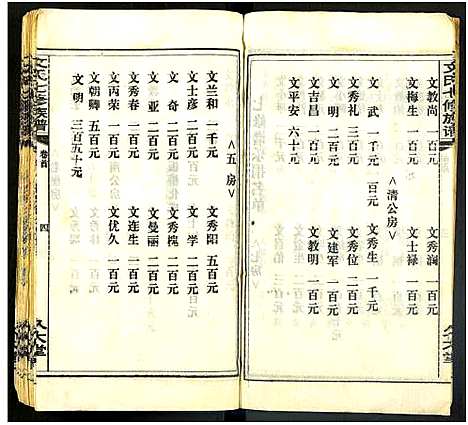 文氏七修族谱
文教尚 一百元 文秀涧 一百元
文梅生 一百元 文士禄 一百元
<清公房>
文武 一千一百元 文秀生 一千元
文秀礼 三百元 文秀位 二百元
文明 二百元 文建军 一百元
文吉昌 一百元 文教明 一百元
文平安 六十元
久大堂
<五房>
文兰和 一千元 文秀阳 五百元
文士彦 二百元 文学 二百元
文奇 二百元 文秀槐 二百元
文亚 二百元 文曼丽 二百元
文秀春 二百元 文连生 二百元
文丙荣 一百元 文优久 一百元
文朝卿 五百元
文明 三百五十元
文氏七修族谱
卷首
四
久大堂